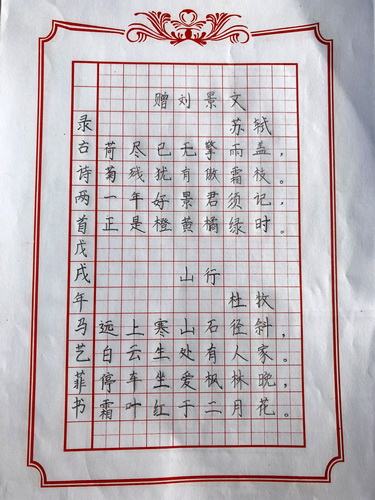 赠刘景文
苏轼
荷尽已无擎雨盖，
菊残犹有傲霜枝。
一年好景君须记，
正是橙黄橘绿时。
山行
杜牧
远上寒山石径斜，
白云生处有人家。
停车坐爱枫林晚，
霜叶红于二月花。
录古诗两首戊戌年马艺菲书